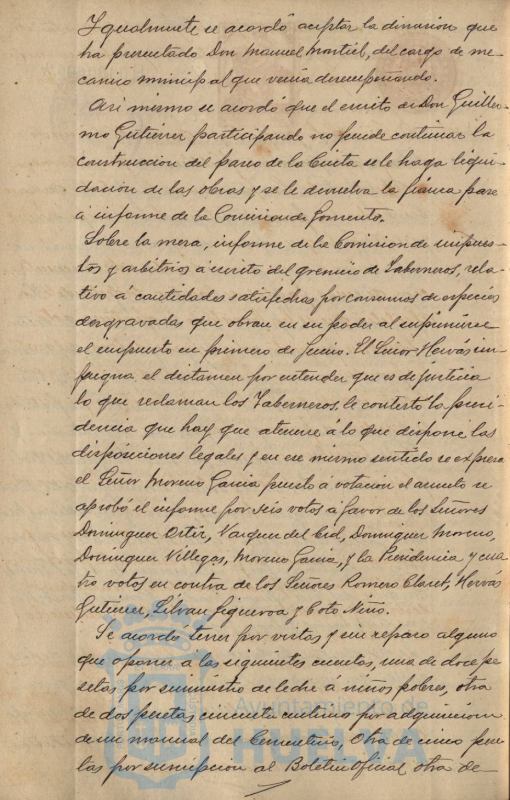 Igualmente se acordó aceptar la dimision que
ha presentado Don Manuel Montiel, del cargo de me-
canico municipal que venia desempeñando.
Asi mismo se acordó que el escrito de Don Guiller-
mo Gutierrez participando no puede continuar la
construccion del paseo de la Cinta se le haga liqui-
dación de las obras y se le devuelva la fianza pase
á informe de la Comision de Fomento.
Sobre la mesa, informe de la Comision de impues-
tos y arbitrios á escrito del gremio de Taberneros, rela-
tivo á cantidades satisfechas por consumos de especies
desgravadas que obran en su poder al suprimirse
el impuesto en primero de Junio. El Señor Hervás im-
pugna el dictamen por entender que es de justicia
lo que reclaman los Taberneros, le contestó la presi-
dencia que hay que atenerse á lo que dispone las
disposiciones legales y en ese mismo sentido se expresa
el Señor Moreno Garcia puesto á votación el asunto se
aprobó el informe por seis votos á favor de los Señores
Dominguez Ortiz, Vazquez del Cid, Dominguez Moreno,
Dominguez Villegas, Moreno Garcia, y la Presidencia y cua
tro votos en contra de los Señores Romero Claret, Hervás
Gutierrez, Silvan Figueroa y Coto Niño.
Se acordó tener por vistas y sin reparo alguno
que oponer a las siguientes cuentas, una de doce pe
setas por suministro de leche á niños pobres, otra
de dos pesetas cincuenta centimos por adquisicion
de un manual del Cementerio, otra de cinco pese
tas por suscripcion al Boletin Oficial otra de
Ayuntamiento de
HUELVA